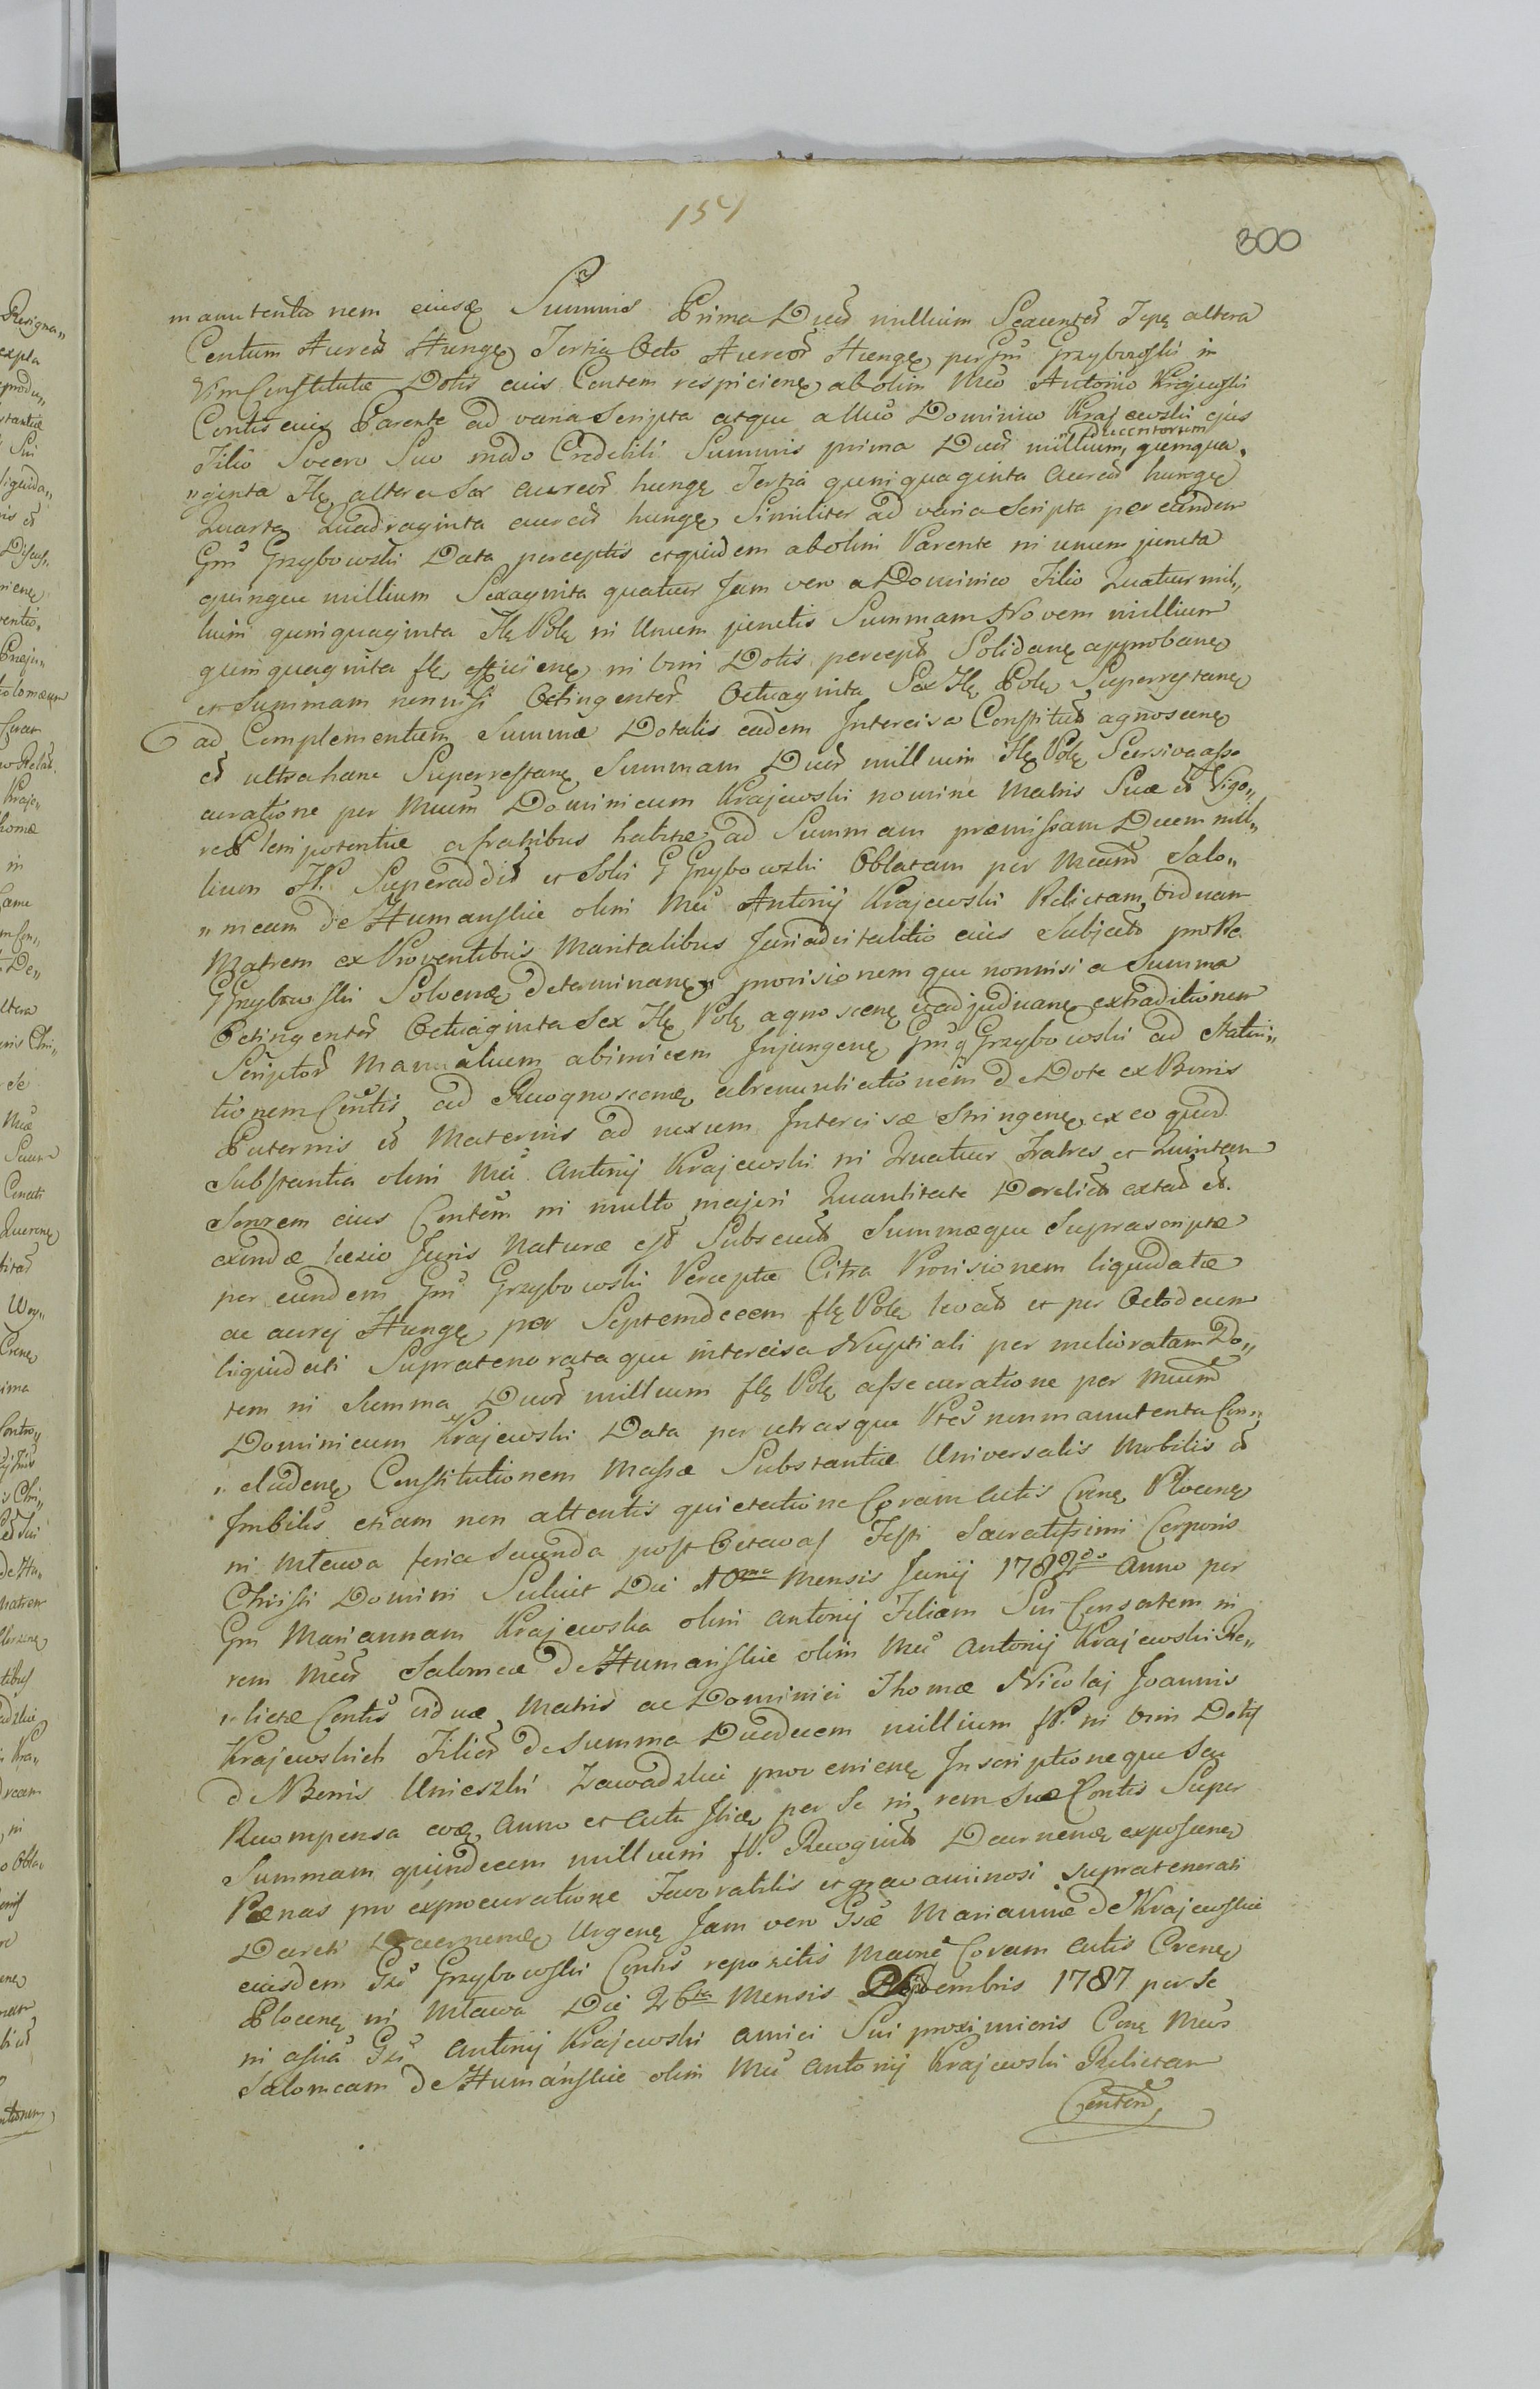 154
300
manutentionem eiusq Summis Prima Duor millium Sexcentor Tępę altera
Centum Aureor Hungę Tertia Octo Aureor Hungę per Gm Grzybowski in
Vim Constitutæ Dotis eius Contem respicienę ab olim Mco Antonio Krajewski
Contis eius Parente ad varia Scripta atque a Mco Dominico Krajewski ejus
Filio Socero Suo modo Credibili Summis prima Duor millium Ducentorum quinqua„
„ginta Flę altera Sex aureor hungę Tertia quinquaginta aureor hungę
Quarta Quadraginta aureor hungę Similiter ad varia Scripta per eundem
Gm Grzybowski Data perceptis etquidem ab olim Parente in unum juncta
quinque millium Sexaginta quatuor Jam vero a Dominico Filio Quatuor mil„
lium quinquaginta Flę Polę in Unum junctis Summam Novem millium
quinquaginta flę efficienę in vim Dotis percept Solidanę approbanę
et Summam nonnisi Octingentor Octuaginta Sex Flę Polę Superrestanę
ad Complementum Summæ Dotalis eadem Intercisa Constitut agnoscenę
et ultra hanc Superrestanę Summam Duor millium Flę Polę Scersiva asse
curatione per Mcum Dominicum Krajewski nomine Matris Suæ et Vigo„
re Plenipotentiæ a fratribus habitæ ad Summam præmissam Duem mil„
lium Fl. Superaddit et Solvi G Grzybowski Oblatam per Mcam Salo„
„meam de Humanskie olim Mci Antonij Krajewski Relictam viduam
Matrem ex Proventibus Maritalibus Juri advitalitio eius Subject pro Re
G Grzybowski Solvenę determinanę provisionemque nonnisi a Summa
Octingentor Octuaginta Sex Flę Polę agnoscenę et adjudicanę extraditionem
Scriptor Manualium abinvicem Injungenę Gm G Grzybowski ad Statui„
tionem Contis ad Recognoscenę abrenuntiationem de Dote ex Bonis
Paternis et Maternis ad nexum Intercisæ Stringenę ex eo quod
Substantia olim Mci Antonij Krajewski in Quatuor Fratres et Quintam
Sororem eius Contem in multo majori Quantitate Derelict extat et
exindæ læsio Juris Naturæ est Subsecut Summæque Suprascriptæ
per eundem Gm Grzybowski Perceptæ Citra Provisionem liquidatæ
ac aurej Hungę per Septemdecem flę Polę levat et per Octodecem
liquidati Supratenorataque intercisa Nuptiali per melioratam Do„
tem in Summa Duor millium flę Polę assecuratione per Mcum
Dominicum Krajewski Data per utrasque Ptes non manutenta Con„
„cludenę Constitutionem Massæ Substantiæ Universalis Mobilis et
Imbilis etiam non attentis quietatione Coram Actis Crenę Plocenę
in Mława feria Secunda post Octavas Festi Sacratissimi Corporis
Christi Domini Scilicet Die 10ma Mensis Junij 1782do Anno per
Gm Mariannam Krajewska olim Antonij Filiam Sui Consortem in
rem Mcor Salomeæ de Humańskie olim Mci Antonij Krajewski Re„
„lictæ Contis viduæ Matris ac Dominici Thomæ Nicolaj Joannis
Krajewskich Filior de Summa Duodecem millium fl. in vim Dotis
de Bonis Unieszki Zawadzkie provenienę Inscriptioneque Sea
Recompensa eoę anno et actu Sticę per Se in rem Suæ Contis Super
Summam quindecem millium fl. Recognit Decernenę exposcenę
Pænas pro exprocuratione Favorabilis et gravaminosi supratenorati
Dcreti Decernenę Urgenę Jam vero Gsæ Mariannæ de Krajewskie
eiusdem Gsi Grzybowski Contis repositis Manif Coram Actis Crenę
Plocenę in Mława Die 26ta Mensis Novembris 1787 per Se
in assia Gsi Antonij Krajewski amici Sui proximioris Conę Mcos
Salomeam de Humańskie olim Mci Antonij Krajewski Relictam
Contem